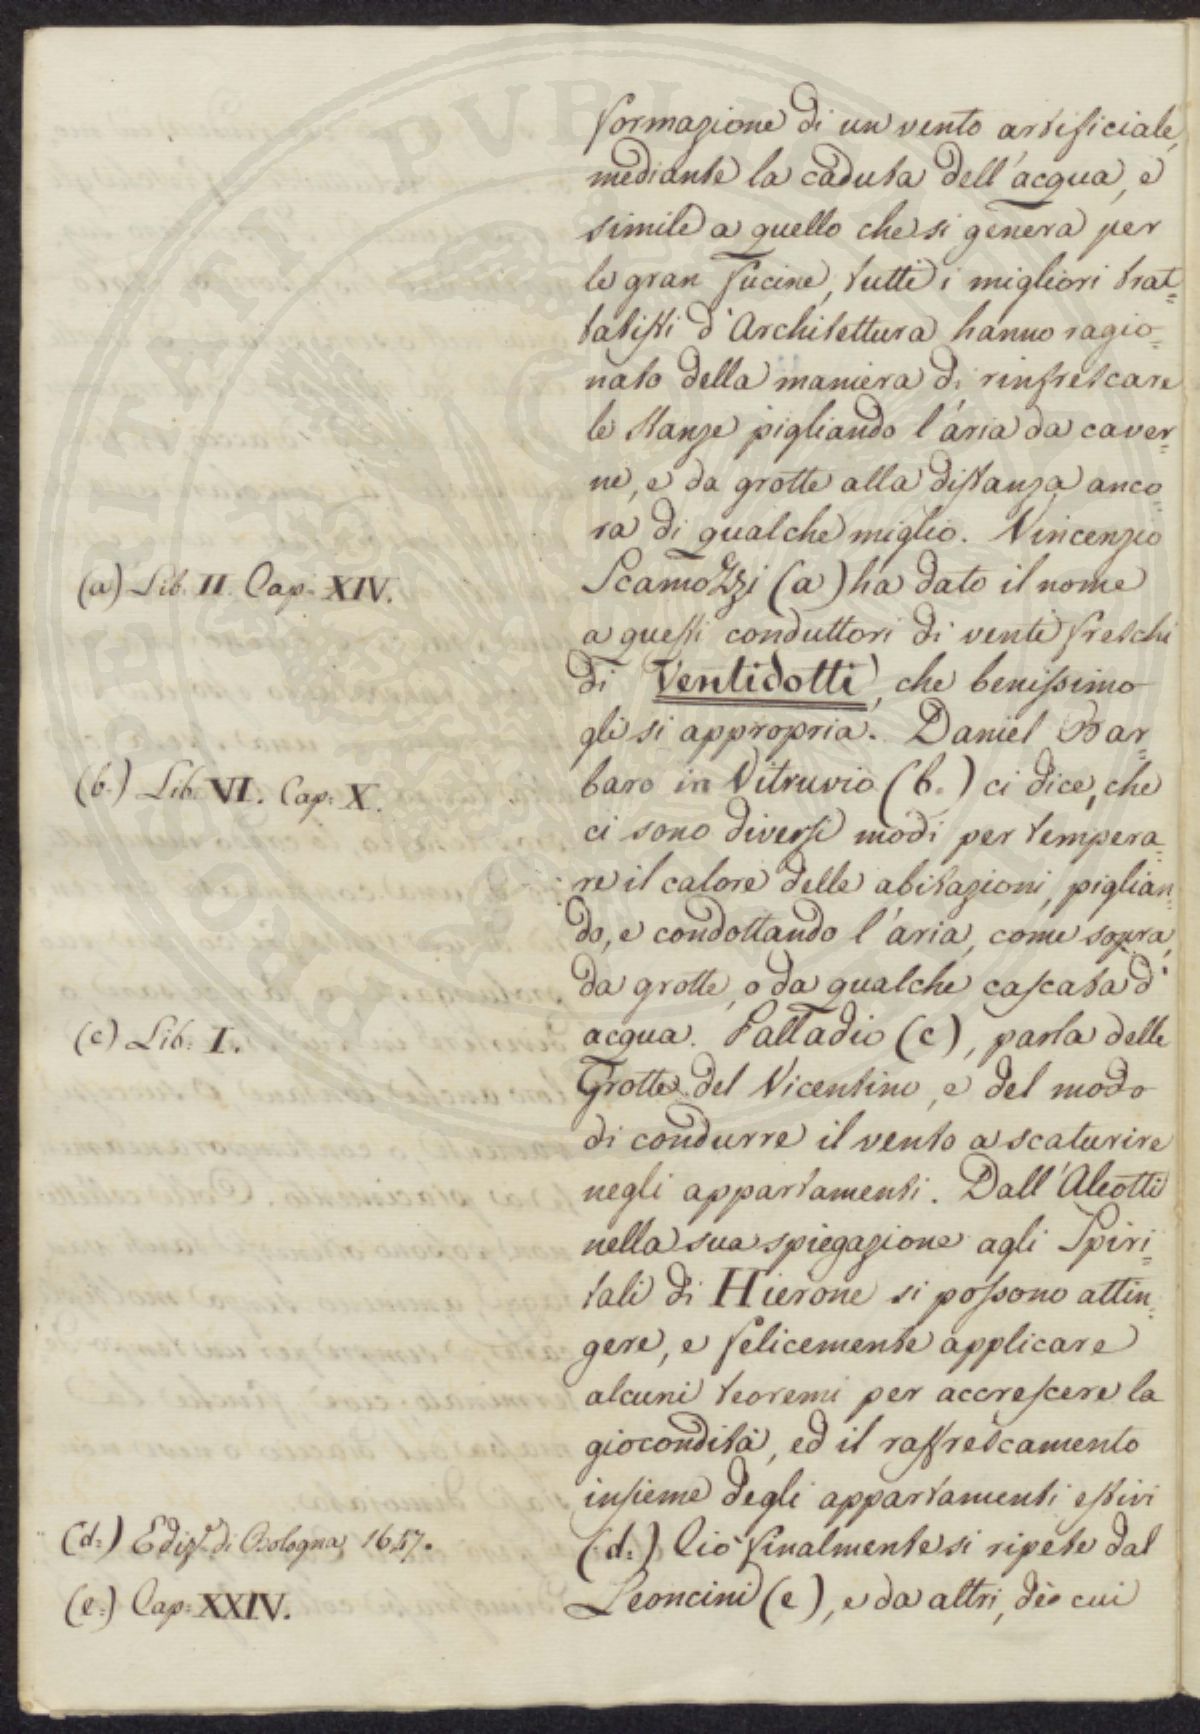 formazione di un vento artificiale,
mediante la caduta dell'acqua, e
simile a quello che si genera per
le gran fucine, tutti i migliori trat=
tatisti d'Architettura hanno ragio=
nato della maniera di rinfrescare
le stanze pigliando l'aria da caver=
ne, e da grotte alla distanza anco=
ra di qualche miglio. Vincenzio
Scamozzi (a) ha dato il nome
a questi conduttori di venti freschi
di Ventidotti, che benissimo
gli si appropria. Daniel Bar=
baro in Vitruvio (b.) ci dice, che
ci sono diversi modi per tempera=
re il calore delle abitazioni, piglian=
do, e condottando l'aria, come sopra,
da grotte, o da qualche cascata d'
acqua. Palladio (c), parla delle
Grotte del Vicentino, e del modo
di condurre il vento a scaturire
negli appartamenti. Dall'Aleotti
nella sua spiegazione agli Spiri=
tali di Hierone si possono attin=
gere, e felicemente applicare
alcuni teoremi per accrescere la
giocondità, ed il raffrescamento
insieme degli appartamenti estivi
(d:) Ciò finalmente si ripete dal
Leoncini (e), e da altri, di cui
(a) Lib. II. Cap. XIV.
(b.) Lib. VI. Cap: X.
(c) Lib: I.
(d:) Ediz. di Bologna 1647.
(e:) Cap: XXIV.